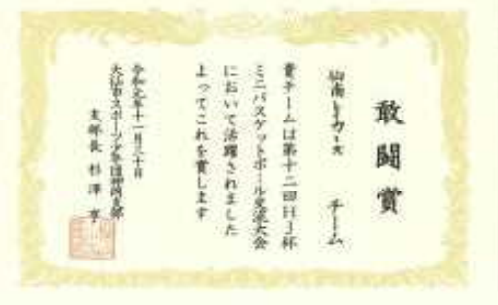 敢闘賞
仙南 チーム
貴チームは第十二回HJ杯
ミニバスケットボール交流大会
において活躍されました
よってこれを賞します
令和元年十一月三十日
大仙市スポーツ少年団神岡支部
支部長 杉澤 亨